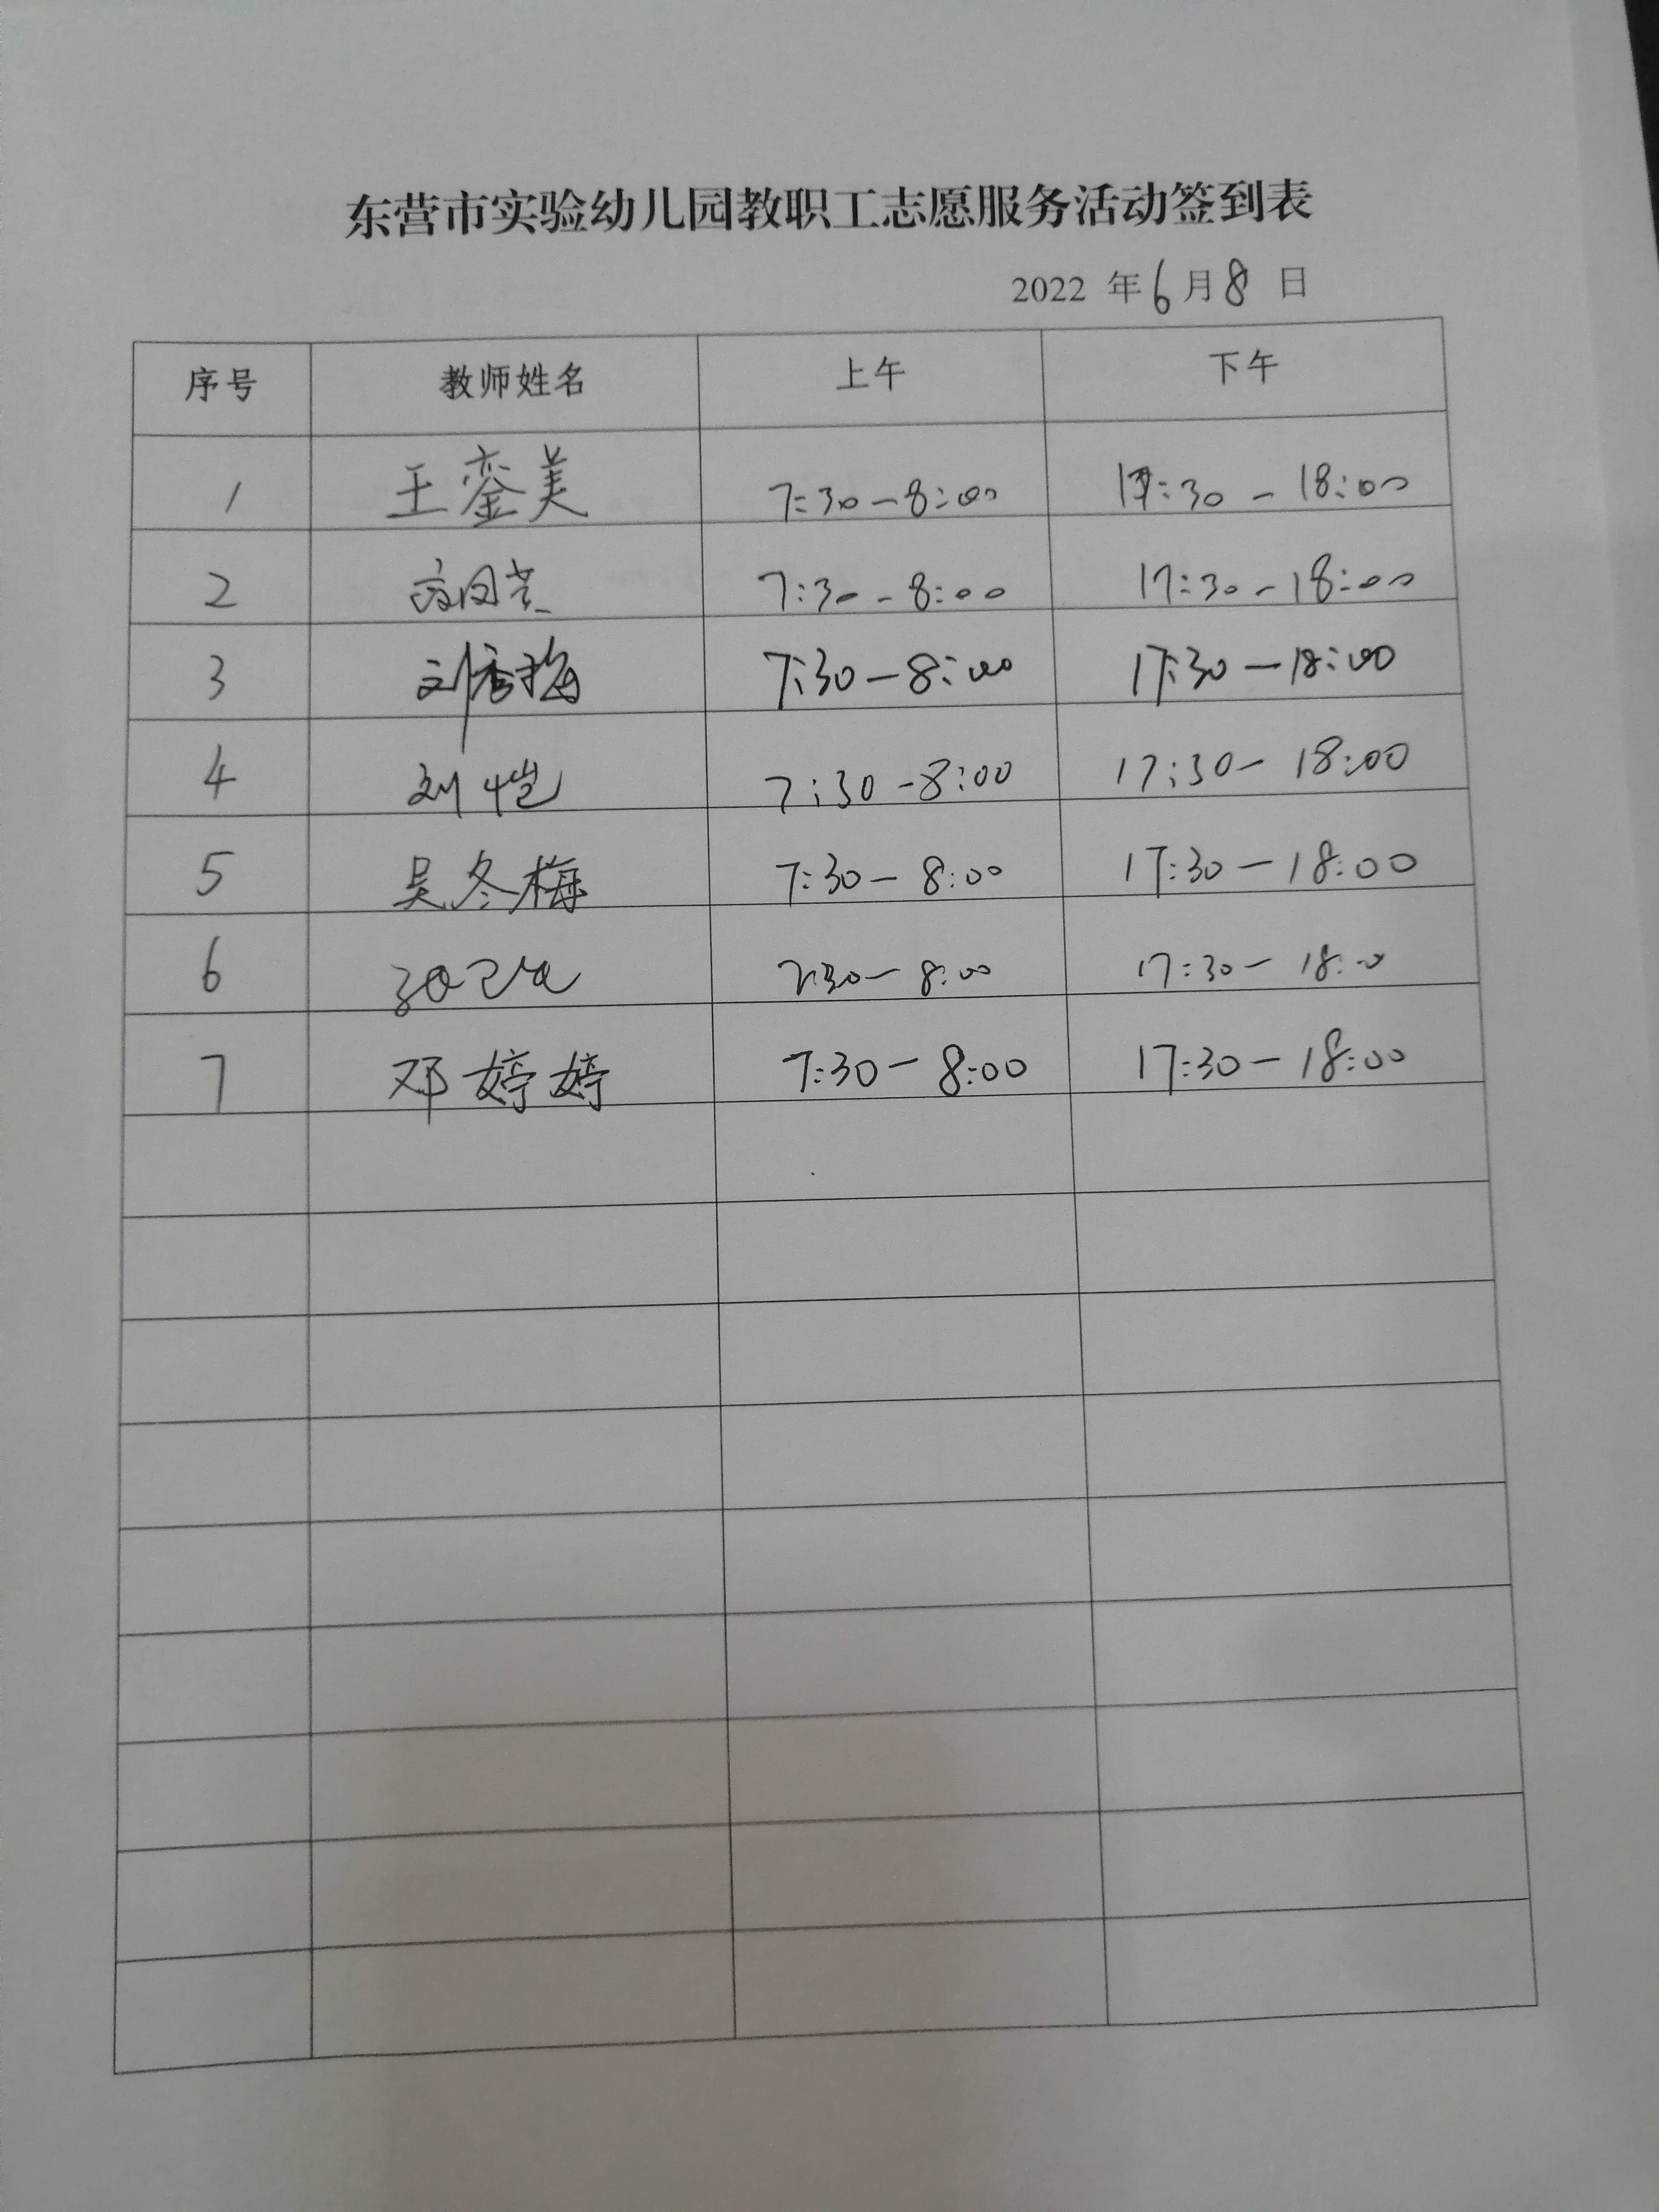 东营市实验幼儿园教职工志愿服务活动签到表
2022 年 6 月 8 日
序号 教师姓名 上午 下午
1 王銮美 7:30-8:00 17:30-18:00
2 7:30-8:00 17:30-18:00
3 刘秀梅 7:30-8:00 17:30-18:00
4 刘恺 7:30-8:00 17:30-18:00
5 吴冬梅 7:30-8:00 17:30-18:00
6 7:30-8:00 17:30-18:00
7 邓婷婷 7:30-8:00 17:30-18:00